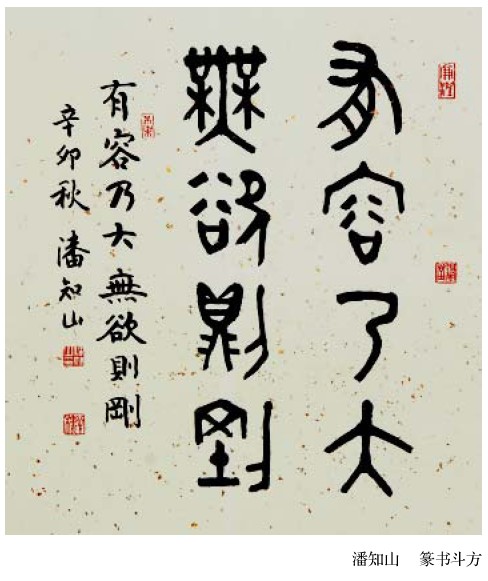 有容乃大
無欲則剛
有容乃大無欲則剛
辛卯秋潘知山
潘知山 篆书斗方